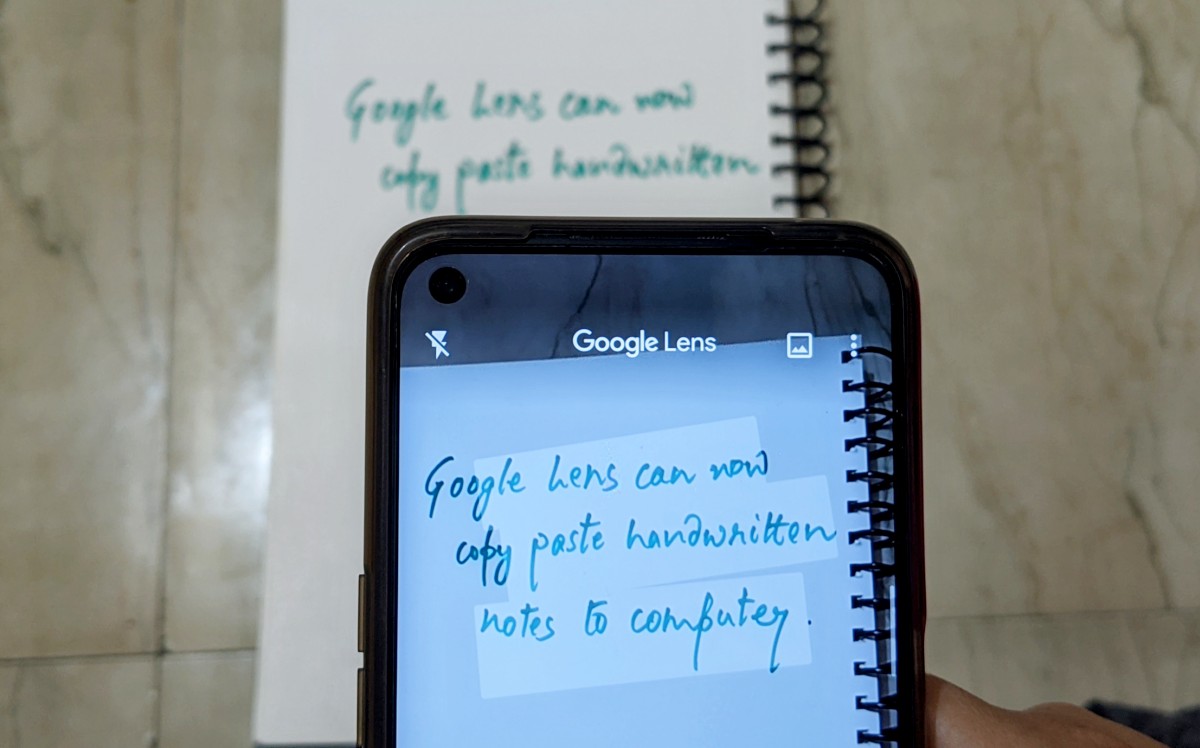 Google Lens can now
copy paste handwritten
Google Lens
Google Lens can now
copy paste handwritten
notes to computer.